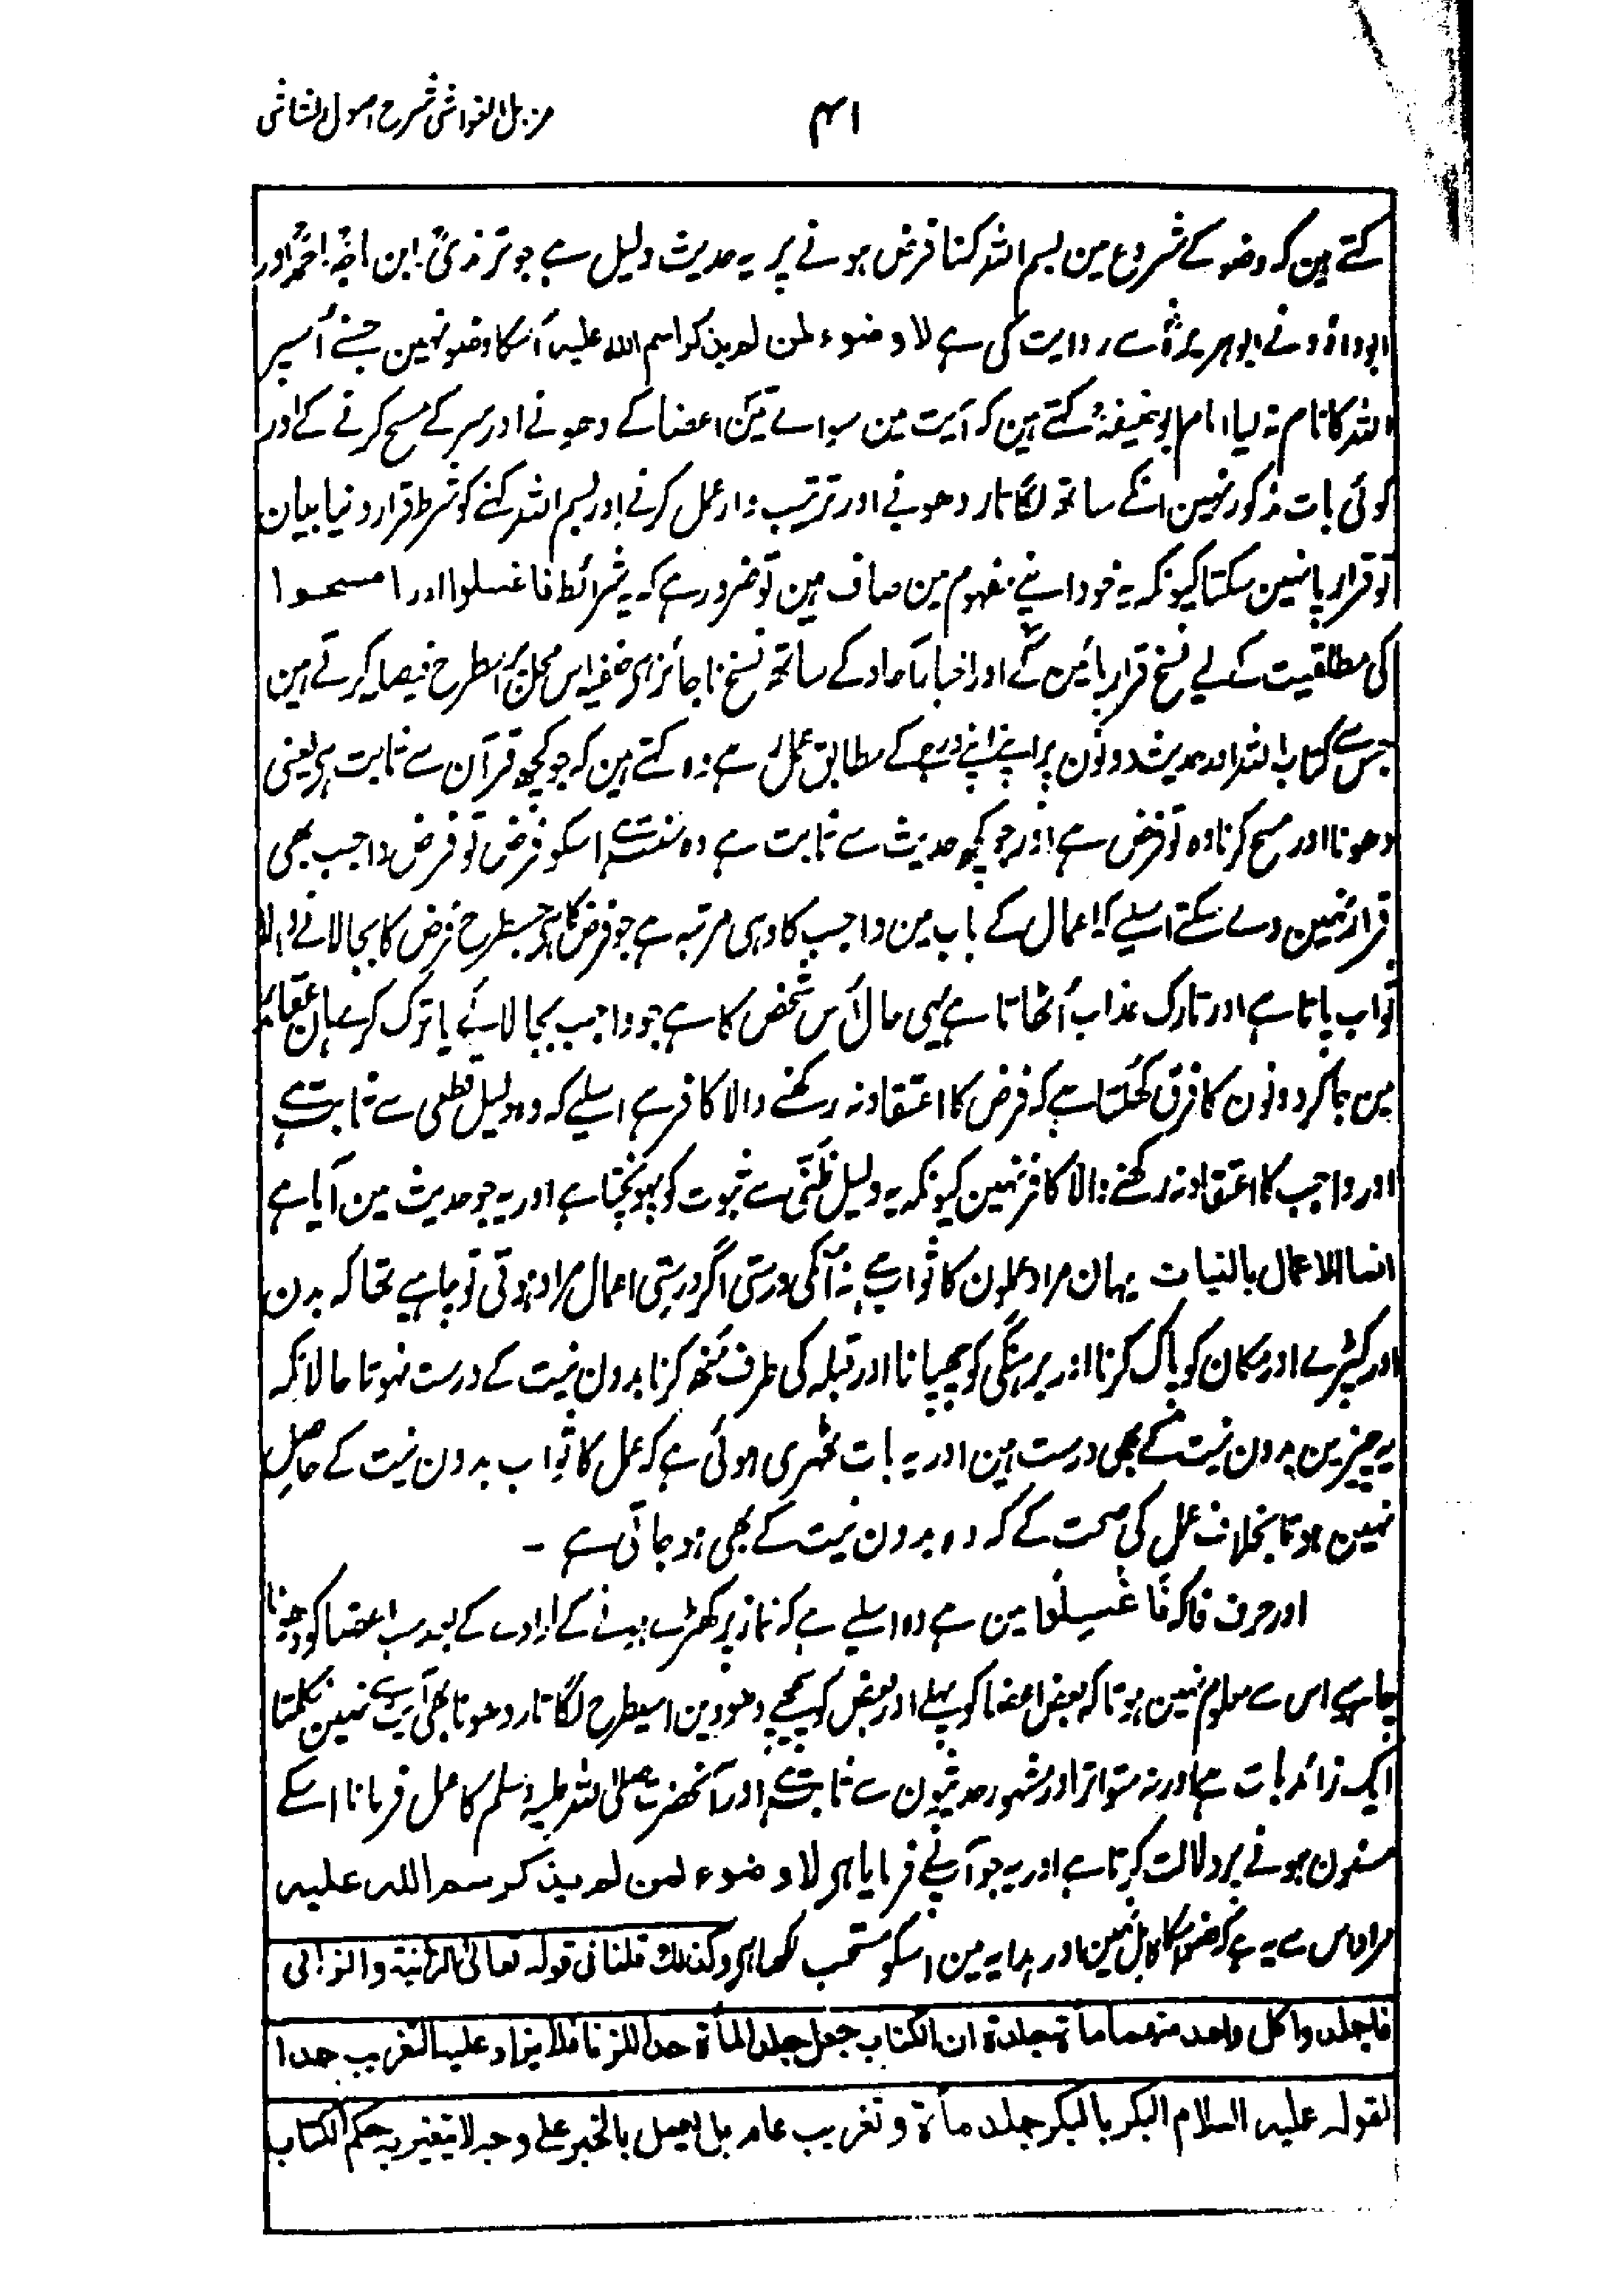 ۴۱
مزیل الغواشی شرح اصول الشاشی
کہتے ہین کہ وضو کے شروع مین بسم اللہ کہنا فرض ہونے پر یہ حدیث دلیل ہے جو ترمذیؒ ابن ماجہؒ احمدؒ اور
ابوداؤد نے ابوہریرہؓ سے روایت کی ہے لا وضوء لمن لم یذکر اسم اللہ علیہ اُسکا وضو نہین جسنے اُسپر
اللہ کا نام نہ لیا امام ابوحنیفہؒ کہتے ہین کہ آیت مین سوائے تین اعضا کے دھونے اور سر کے مسح کرنے کے اور
کوئی بات مذکور نہین انکے ساتھ لگاتار دھونے اور ترتیب وار عمل کرنے اور بسم اللہ کہنے کو شرط قرار دنیا بیان
تو قرار پا نہین سکتا کیونکہ یہ خود اپنے مفہوم مین صاف ہین تو ضرور ہے کہ یہ شرائط فاغسلوا اور امسحوا
کی مطلقیت کے لیے نسخ قرار پائین گے اور اخبار آحاد کے ساتھ نسخ ناجائز ہی حنفیہ اس محل پر اسطرح فیصلہ کرتے ہین
جس سے کتاب اللہ اور حدیث دونون پر اپنے اپنے درجے کے مطابق عمل رہے وہ کہتے ہین کہ جو کچھ قرآن سے ثابت ہی یعنی
دھونا اور مسح کرنا وہ تو فرض ہے اور جو کچھ حدیث سے ثابت ہے وہ سنت ہے اسکو فرض تو فرض واجب بھی
قرار نہین دے سکتے اسلیے کہ اعمال کے باب مین واجب کا وہی مرتبہ ہے جو فرض کا ہی جسطرح فرض کا بجا لانے والا
ثواب پاتا ہے اور تارک عذاب اُٹھاتا ہے یہی حال اُس شخص کا ہے جو واجب بجا لائے یا ترک کرے ہان عقائد
مین جا کر دونون کا فرق کُھلتا ہے کہ فرض کا اعتقاد نہ رکھنے والا کافر ہے اسلیے کہ وہ دلیل قطعی سے ثابت ہے
اور واجب کا اعتقاد نہ رکھنے والا کافر نہین کیونکہ یہ دلیل ظنّی سے ثبوت کو پہونچتا ہے اور یہ جو حدیث مین آیا ہے
انما الاعمال بالنیات یہان مراد عملون کا ثواب ہے نہ اُنکی درستی اگر درستی اعمال مراد ہوتی تو چاہیے تھا کہ بدن
اور کپڑے اور مکان کو پاک کرنا اور برہنگی کو چھپانا اور قبلہ کی طرف مُنھ کرنا بدون نیت کے درست نہوتا حالانکہ
یہ چیزین بدون نیت کے بھی درست ہین اور یہ بات ٹھہری ہوئی ہے کہ عمل کا ثواب بدون نیت کے حاصل
نہین ہوتا بخلاف عمل کی صحت کے کہ وہ بدون نیت کے بھی ہو جاتی ہے ـ
اور حرف فا کہ فَاغْسِلُوا مین ہے وہ اسلیے ہے کہ نماز پر کھڑے ہونے کے ارادے کے بعد سب اعضا کو دھونا
چاہیے اس سے معلوم نہین ہوتا کہ بعض اعضا کو پہلے اور بعض کو پیچھے دھووین اسیطرح لگاتار دھونا بھی آیت سے نہین نکلتا
ایک زائد بات ہے اور نہ متواتر اور مشہور حدیثون سے ثابت ہے اور آنحضرت صلی اللہ علیہ وسلم کا عمل فرمانا اسکے
مسنون ہونے پر دلالت کرتا ہے اور یہ جو آپنے فرمایا ہی لا وضوء لمن لم یذکر سم اللہ علیہ
مراد اس سے یہ ہے کہ وضو اسکا کامل نہین اور ہدایہ مین اسکو مستحب لکھا ہی وکذلک قلنا فی قولہ تعالیٰ الزانیۃ والزانی
فاجلدوا کل واحد منہما مأۃ جلدۃ ان الکتاب جعل جلد المأۃ حدا للزنا فلا یزاد علیہ التغریب حدا
لقولہ علیہ السلام البکر بالبکر جلد مأۃ وتغریب عام بل یعمل بالخبر علی وجہ لا یتغیر بہ حکم الکتاب